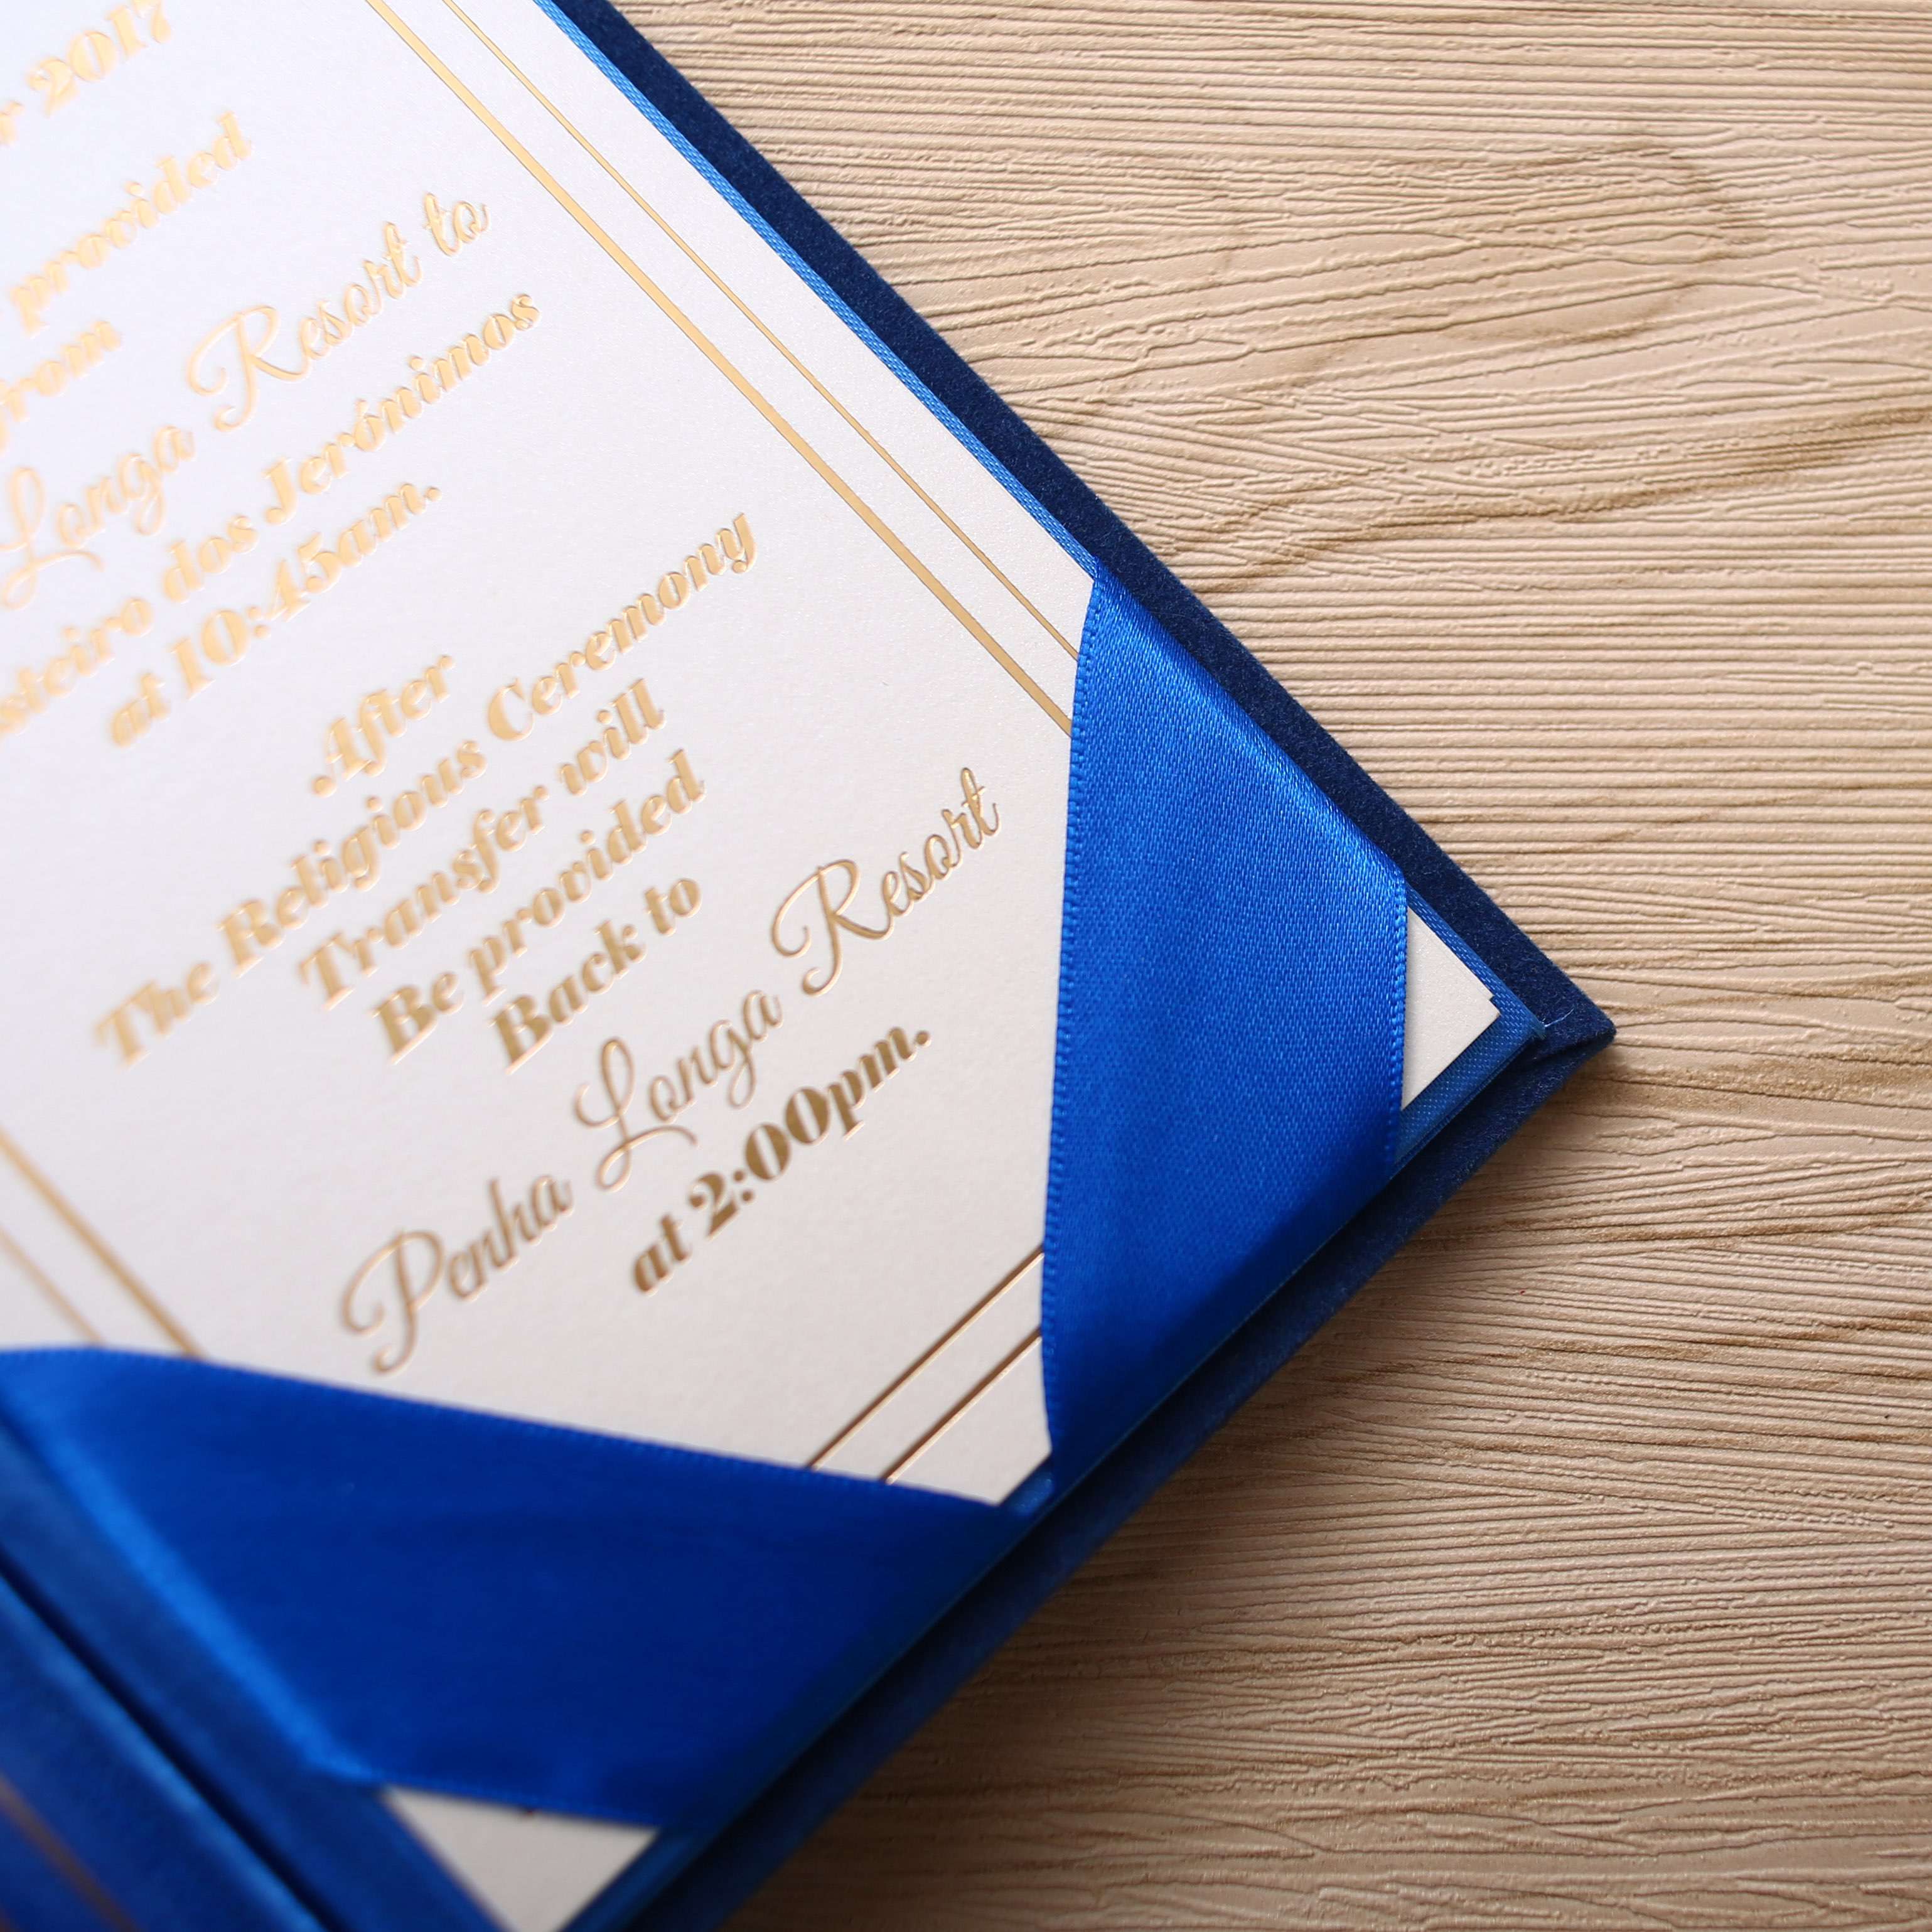 2017
provided
from
Longa Resort to
dos Jerónimos
at 10:45am.
After
The Religious Ceremony
Transfer will
Be provided
Back to
Penha Longa Resort
at 2:00pm.